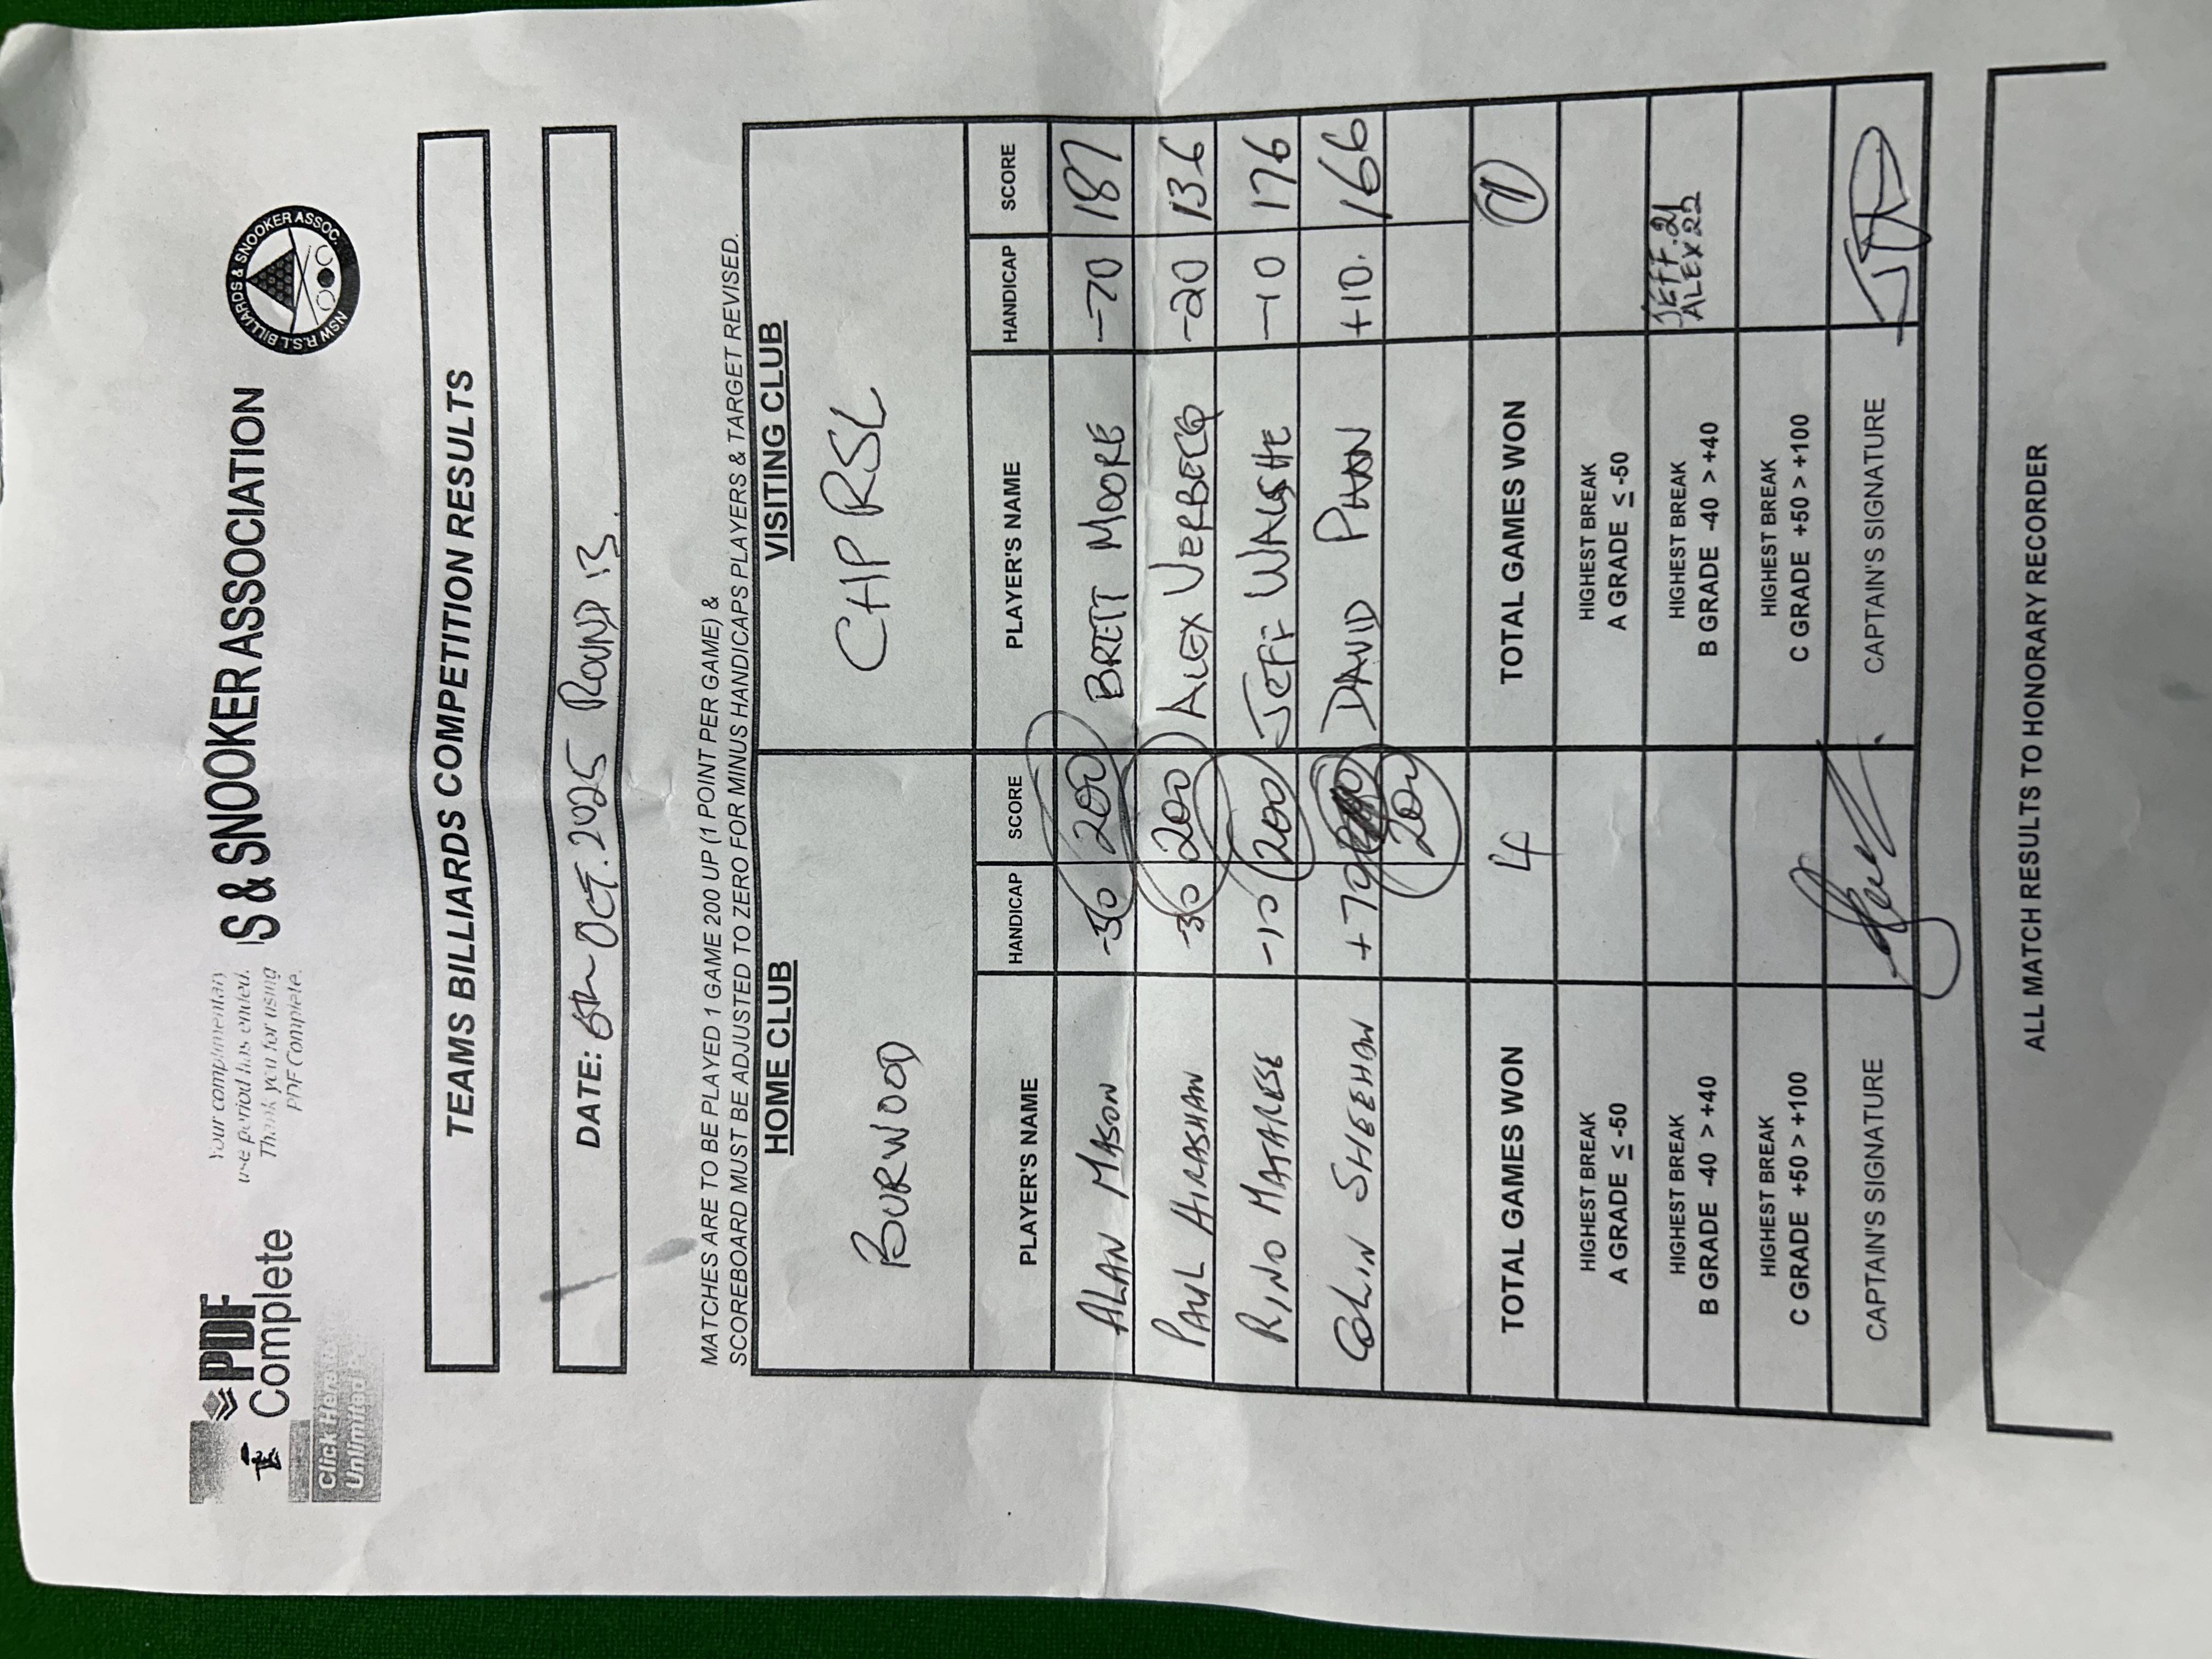 PDF
Complete
Click Here
Unlimited
Your complimentary
use period has ended.
Thank you for using
PDF Complete.
S & SNOOKER ASSOCIATION
NSW R.S.L. BILLIARDS & SNOOKER ASSOC.
TEAMS BILLIARDS COMPETITION RESULTS
DATE: 6th OCT. 2025 ROUND 13.
MATCHES ARE TO BE PLAYED 1 GAME 200 UP (1 POINT PER GAME) &
SCOREBOARD MUST BE ADJUSTED TO ZERO FOR MINUS HANDICAPS PLAYERS & TARGET REVISED.
HOME CLUB VISITING CLUB
BURWOOD CHP RSL
PLAYER'S NAME HANDICAP SCORE PLAYER'S NAME HANDICAP SCORE
ALAN MASON 200 BRETT MOORE -70 187
PAUL HIRASHAN -30 200 ALEX VERBECQ -20 136
RINO MATARESE -10 200 JEFF WALSHE -10 176
COLIN SHEEHAN +70 DAVID PHAN +10. 166
200
TOTAL GAMES WON 4 TOTAL GAMES WON
HIGHEST BREAK HIGHEST BREAK
A GRADE ≤ -50 A GRADE ≤ -50
HIGHEST BREAK HIGHEST BREAK JEFF. 21
B GRADE -40 > +40 B GRADE -40 > +40 ALEX 22
HIGHEST BREAK HIGHEST BREAK
C GRADE +50 > +100 C GRADE +50 > +100
CAPTAIN'S SIGNATURE CAPTAIN'S SIGNATURE
ALL MATCH RESULTS TO HONORARY RECORDER